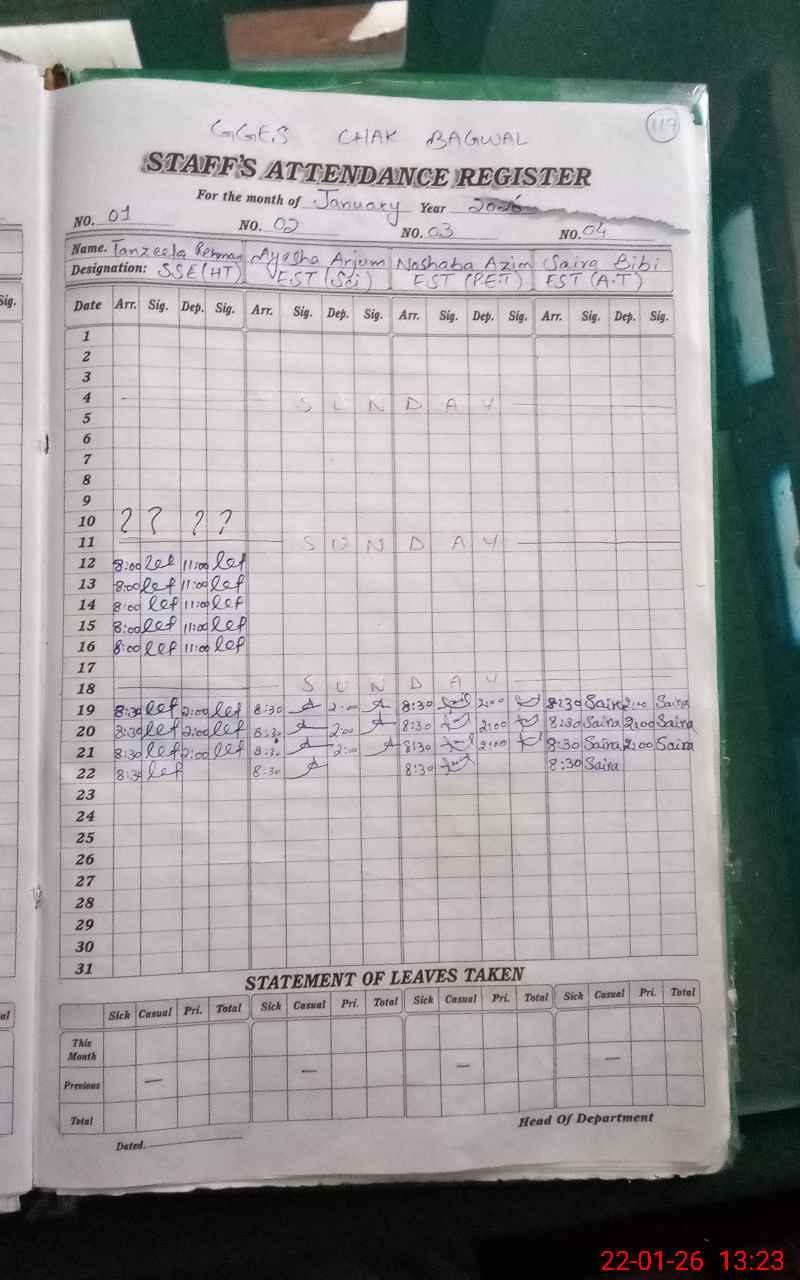 119
GGES CHAK BAGWAL
STAFF'S ATTENDANCE REGISTER
For the month of January Year 2026
NO. 01 NO. 02 NO. 03 NO. 04
Name. Tanzeela Rehman Ayesha Anjum Noshaba Azim Saira Bibi
Designation: SSE(HT) EST (Sci) EST (P.E.T) EST (A.T)
Sig. Date Arr. Sig. Dep. Sig. Arr. Sig. Dep. Sig. Arr. Sig. Dep. Sig. Arr. Sig. Dep. Sig.
1
2
3
4 SUNDAY
5
6
7
8
9
10 ? ? ? ?
11 SUNDAY
12 8:00 11:00
13 8:00 11:00
14 8:00 11:00
15 8:00 11:00
16 8:00 11:00
17
18 SUNDAY
19 8:30 2:00 8:30 2:00 8:30 2:00 8:30 Saira 2:00 Saira
20 8:30 2:00 8:30 2:00 8:30 2:00 8:30 Saira 2:00 Saira
21 8:30 2:00 8:30 2:00 8:30 2:00 8:30 Saira 2:00 Saira
22 8:30 8:30 8:30 8:30 Saira
23
24
25
26
27
28
29
30
31
STATEMENT OF LEAVES TAKEN
al Sick Casual Pri. Total Sick Casual Pri. Total Sick Casual Pri. Total Sick Casual Pri. Total
This
Month
Previous — — — —
Total
Head Of Department
Dated.
22-01-26 13:23